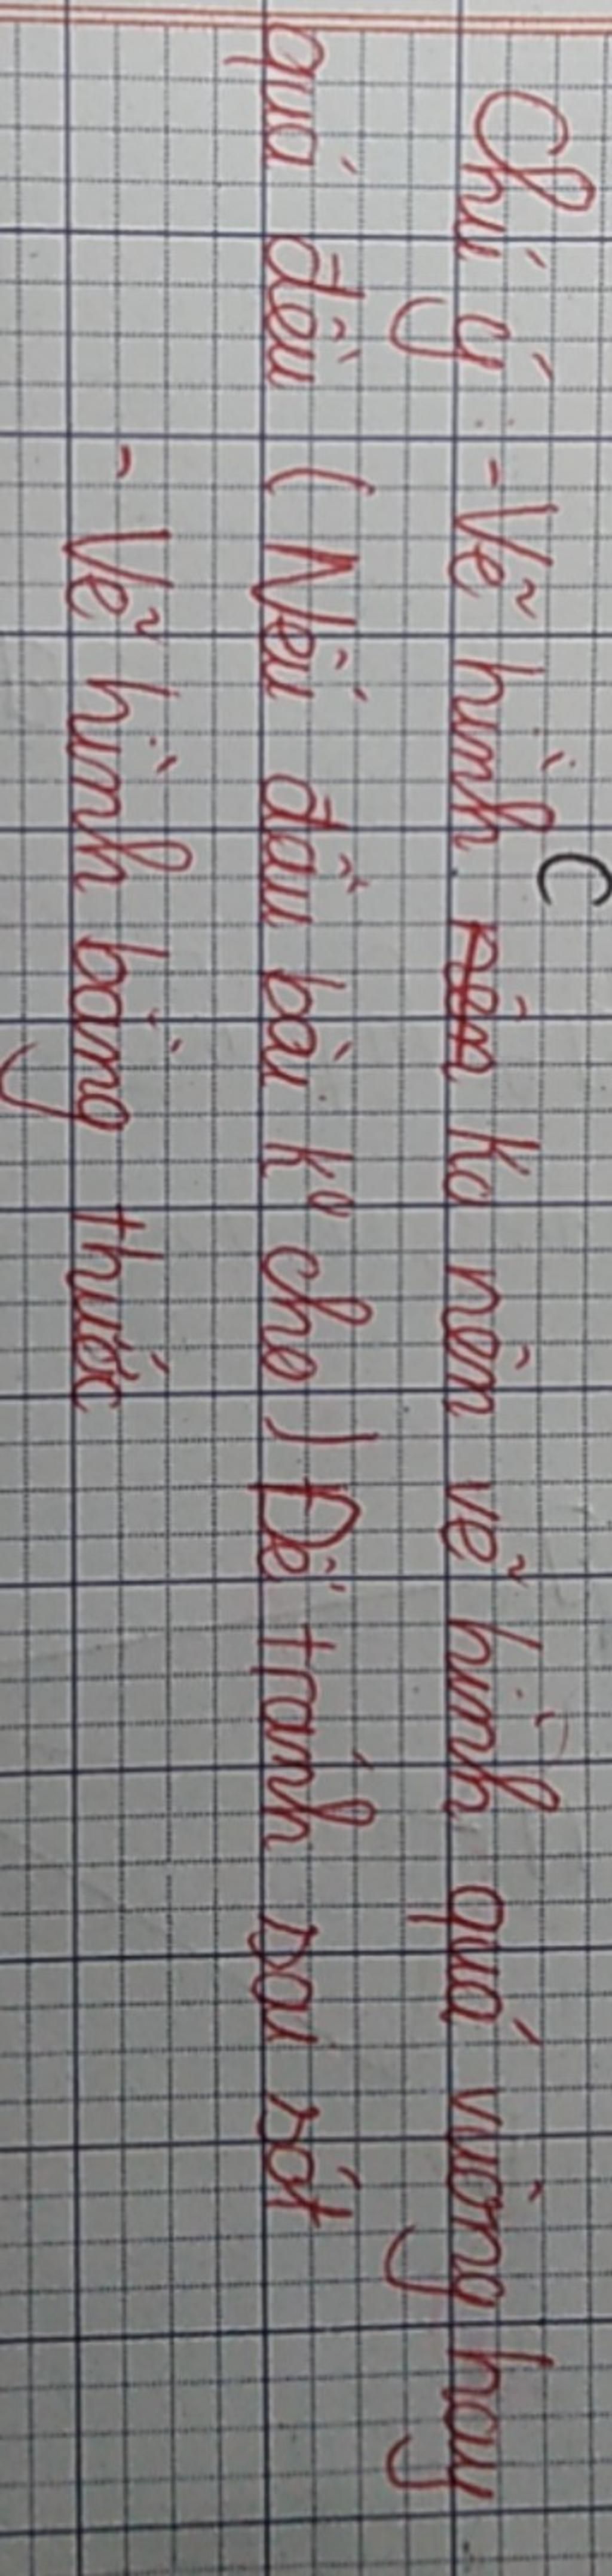 Chú ý: - Vẽ hình ko nên vẽ hình quá vuông hay
quá đều (Nếu đầu bài ko cho) Để tránh sai sót
- Vẽ hình bằng thước